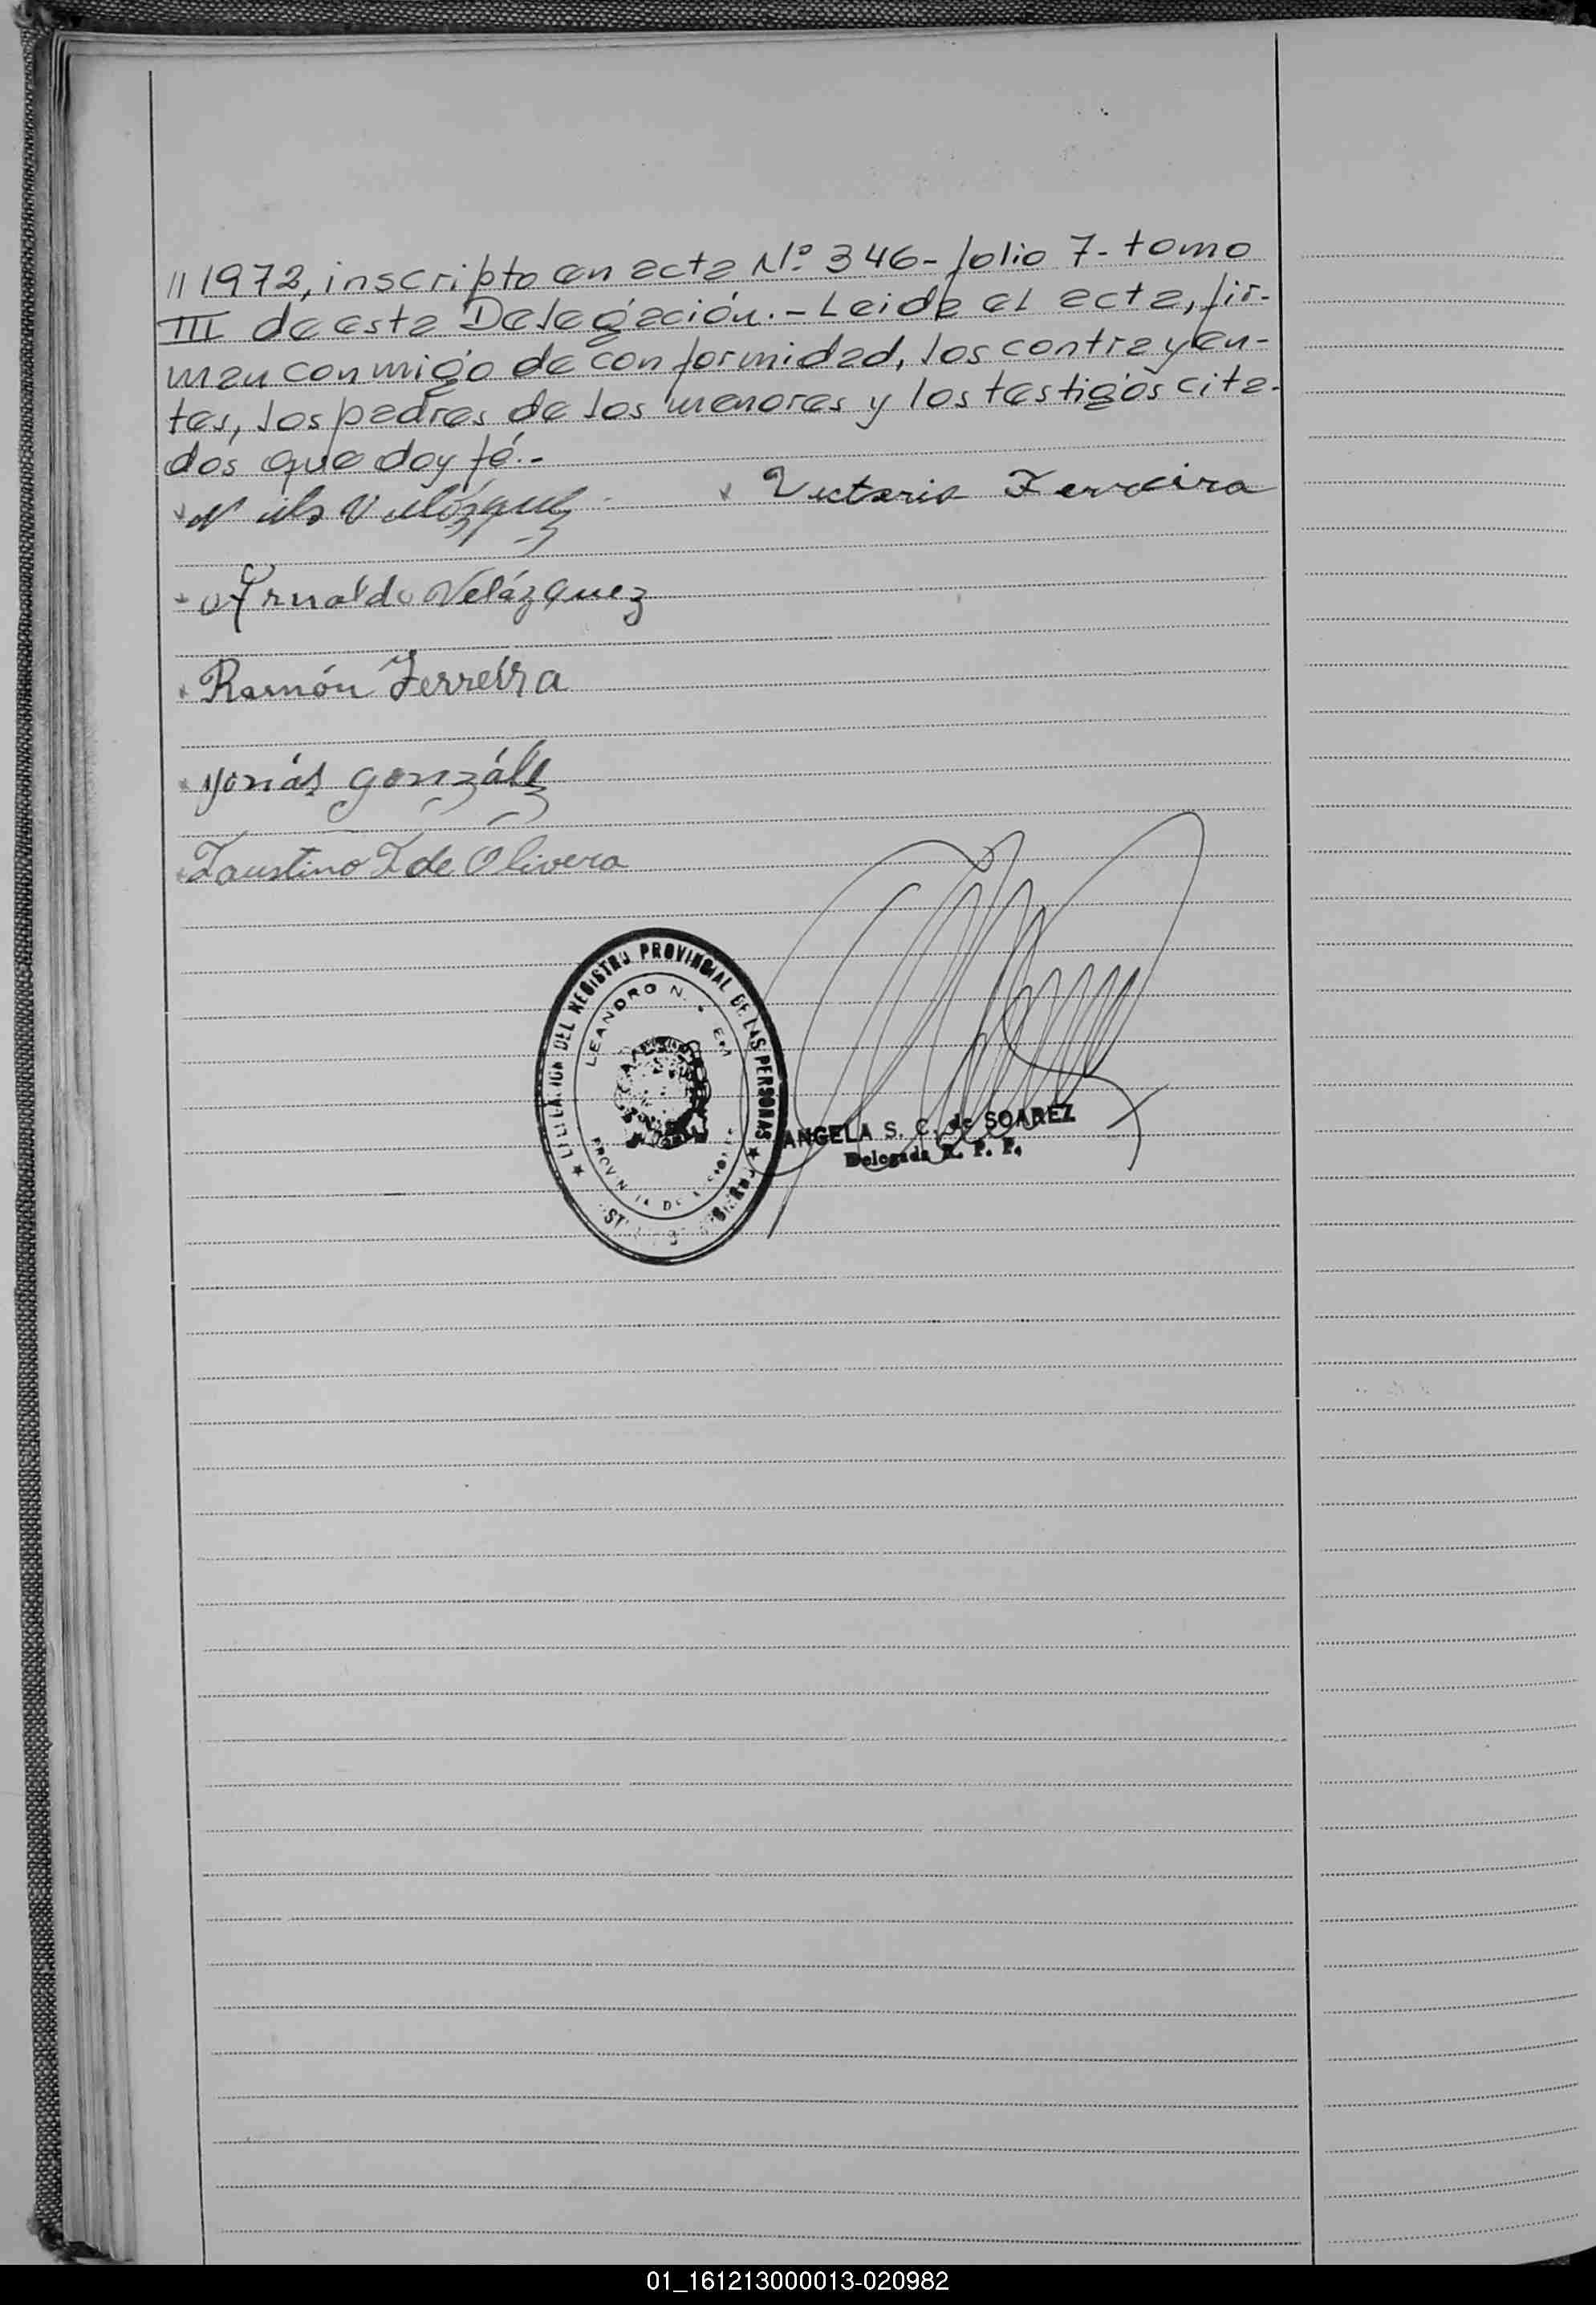 // 1972, inscripto en acta Nº 346- folio 7- tomo
III de esta Delegación.- Leida el acta, fir-
man conmigo de conformidad, los contrayen-
tes, los padres de los menores y los testigos cita-
dos que doy fé.-
Velázquez
Victoria Ferreira
Arnaldo Velázquez
Ramón Ferreira
González
Faustino F de Olivera
DEL REGISTRO PROVINCIAL DE LAS PERSONAS
LEANDRO N.
ANGELA S. C. de SOAREZ
Delegada R. P. P.
01_161213000013-020982